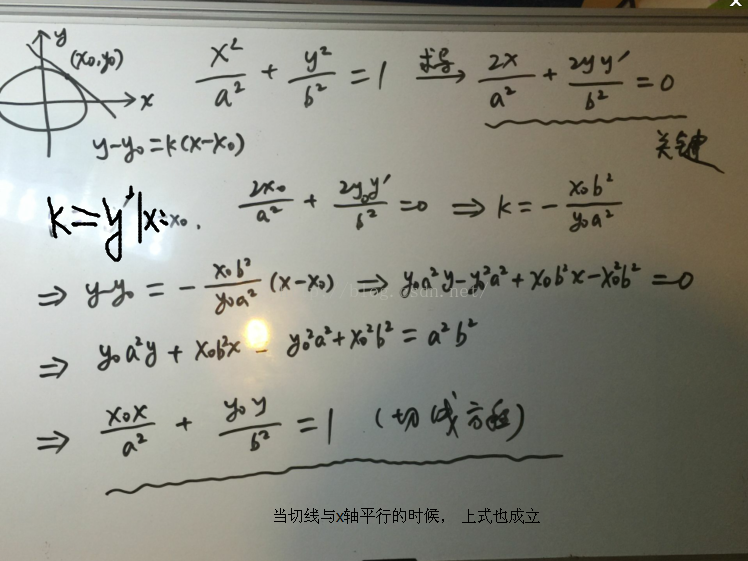 y
(x₀,y₀)
x
x²/a² + y²/b² = 1 求导→ 2x/a² + 2yy′/b² = 0
y-y₀=k(x-x₀)
关键
k=y′|x=x₀. 2x₀/a² + 2y₀y′/b² =0 ⇒ k = - x₀b²/y₀a²
⇒ y-y₀ = - x₀b²/y₀a² (x-x₀) ⇒ y₀a²y-y₀²a²+x₀b²x-x₀²b² =0
http://blog.csdn.net/
⇒ y₀a²y + x₀b²x = y₀²a²+x₀²b² = a²b²
⇒ x₀x/a² + y₀y/b² = 1 (切线方程)
当切线与x轴平行的时候, 上式也成立
x